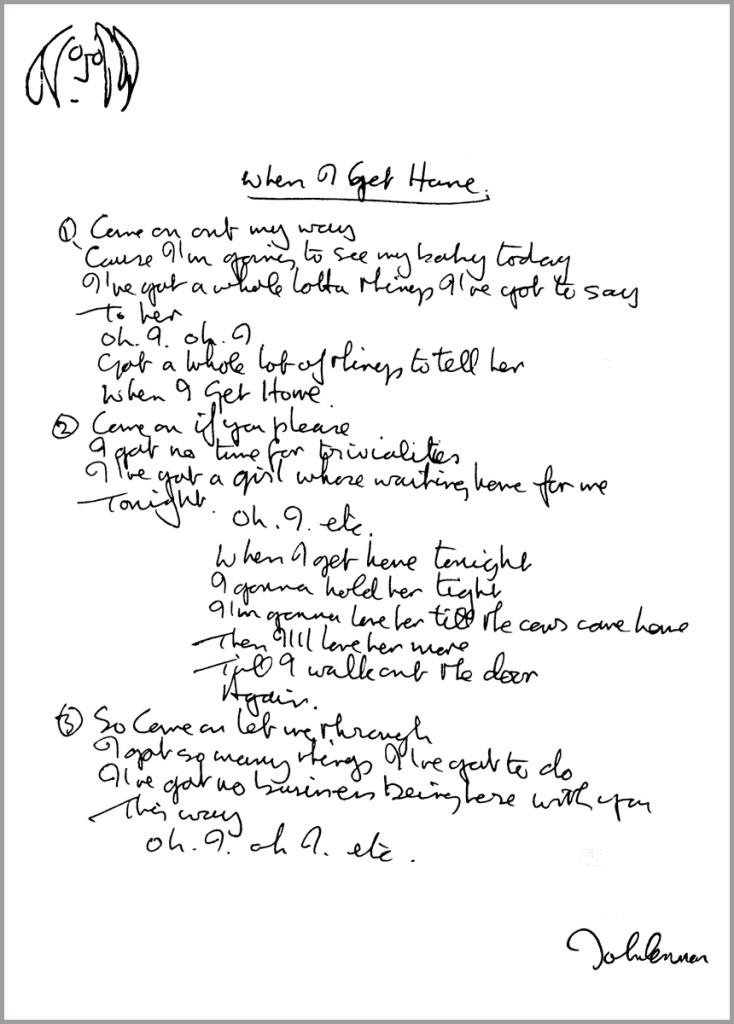 When I Get Home.
① Come on out my way
'Cause I'm going to see my baby today
I've got a whole lotta things I've got to say
To her
oh. I. oh. I
Got a whole lot of things to tell her
When I Get Home
② Come on if you please
I got no time for trivialities
I've got a girl whose waiting home for me
Tonight.
oh. I. etc.
When I get home tonight
I gonna hold her tight
I'm gonna love her till the cows come home
Then I'll love her more
Till I walk out the door
Again.
③ So Come on let me through
I got so many things I've got to do
I've got no business being here with you
This way
oh. I. oh I. etc.
John Lennon